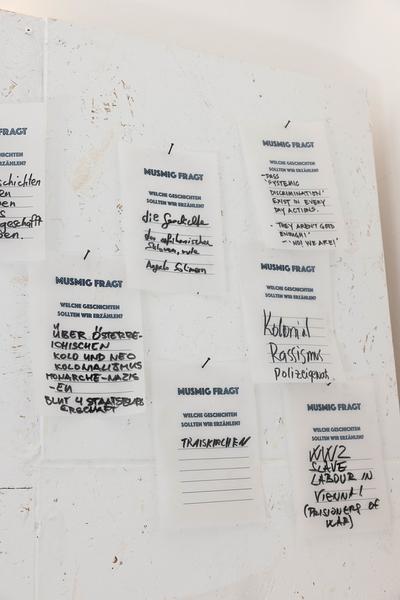 FRAGT
CHICHTEN
ERZÄHLEN?
schichten
en
en
s
geschafft
en.
MUSMIG FRAGT
WELCHE GESCHICHTEN
SOLLTEN WIR ERZÄHLEN?
die Geschichte
des afrikanischen
Sklaven, mute
Angelo Soliman
MUSMIG FRAGT
WELCHE GESCHICHTEN
SOLLTEN WIR ERZÄHLEN?
- DASS
"SYSTEMIC
DISCRIMINATION"
EXIST IN EVERY
DAY ACTIONS.
- "THEY AREN'T GOOD
ENOUGH!"
- "NO! WE ARE!"
MUSMIG FRAGT
WELCHE GESCHICHTEN
SOLLTEN WIR ERZÄHLEN?
ÜBER ÖSTERRE-
ICHISCHEN
KOLO UND NEO
KOLONIALISMUS
MONARCHE-NAZIS
-EU
BLUT & STAATSBÜRG
ERSCHAFT
MUSMIG FRAGT
WELCHE GESCHICHTEN
SOLLTEN WIR ERZÄHLEN?
Kolonial
Rassismus
Polizeigewalt
MUSMIG FRAGT
WELCHE GESCHICHTEN
SOLLTEN WIR ERZÄHLEN?
TRAISKIRCHEN
MUSMIG FRAGT
WELCHE GESCHICHTEN
SOLLTEN WIR ERZÄHLEN?
WW2
SLAVE
LABOUR IN
VIENNA!
(PRISIONERS OF
WAR)